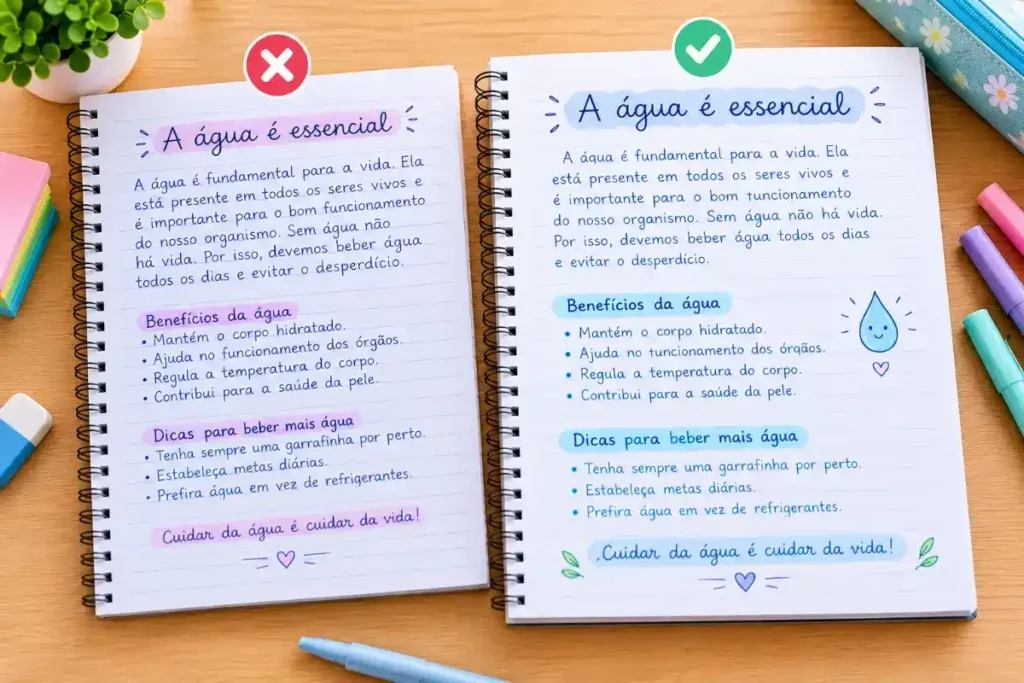 A água é essencial
A água é fundamental para a vida. Ela
está presente em todos os seres vivos e
é importante para o bom funcionamento
do nosso organismo. Sem água não
há vida. Por isso, devemos beber água
todos os dias e evitar o desperdício.
Benefícios da água
• Mantém o corpo hidratado.
• Ajuda no funcionamento dos órgãos.
• Regula a temperatura do corpo.
• Contribui para a saúde da pele.
Dicas para beber mais água
• Tenha sempre uma garrafinha por perto.
• Estabeleça metas diárias.
• Prefira água em vez de refrigerantes.
Cuidar da água é cuidar da vida!
A água é essencial
A água é fundamental para a vida. Ela
está presente em todos os seres vivos e
é importante para o bom tuncionamento
do nosso organismo. Sem água não há vida.
Por isso, devemos beber água todos os dias
e evitar o desperdício.
Benefícios da água
• Mantém o corpo hidratado.
• Ajuda no tuncionamento dos órgãos.
• Regula a temperatura do corpo.
• Contribui para a saúde da pele.
Dicas para beber mais água
• Tenha sempre uma garrafinha por perto.
• Estabeleça metas diárias.
• Prefira água em vez de refrigerantes.
.Cuidar da água é cuidar da vida!